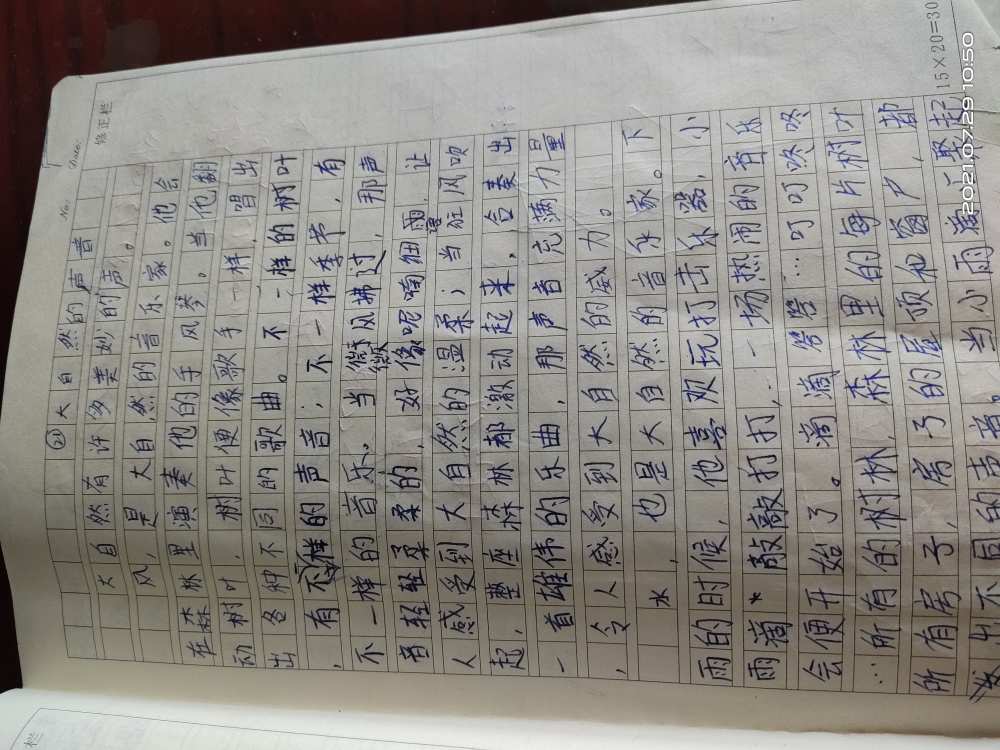 No:
Date:
修正栏
㉑ 大自然的声音
大自然有许多美妙的声。
风,是大自然的音乐家。他会
在森林里演奏他的手风琴。当他翻
动树叶,树叶便像歌手一样,唱出
各种不同的歌曲。不一样的树叶
,有不一样的声音;不一样季节,有
不一样的音乐。当微风拂过,那声
音轻轻柔柔的,好像呢喃细雨,让
人感受到大自然的温柔;当狂风吹
起,整座森林都激动起来,合奏出
一首雄伟的乐曲,那声音充满力量
,令人感受到大自然的威力。
水,也是大自然的音乐家。下
雨的时候,他喜欢玩打击乐器,小
雨滴敲敲打打,一场热闹的音乐
会便开始了。滴滴答答…叮叮咚咚
…所有的树林,森林里的每片树叶
所有房子,房子的屋顶和窗户,都
发出不同的声音。当小雨滴聚起
15×20=30
2021.07.29 10:50
栏